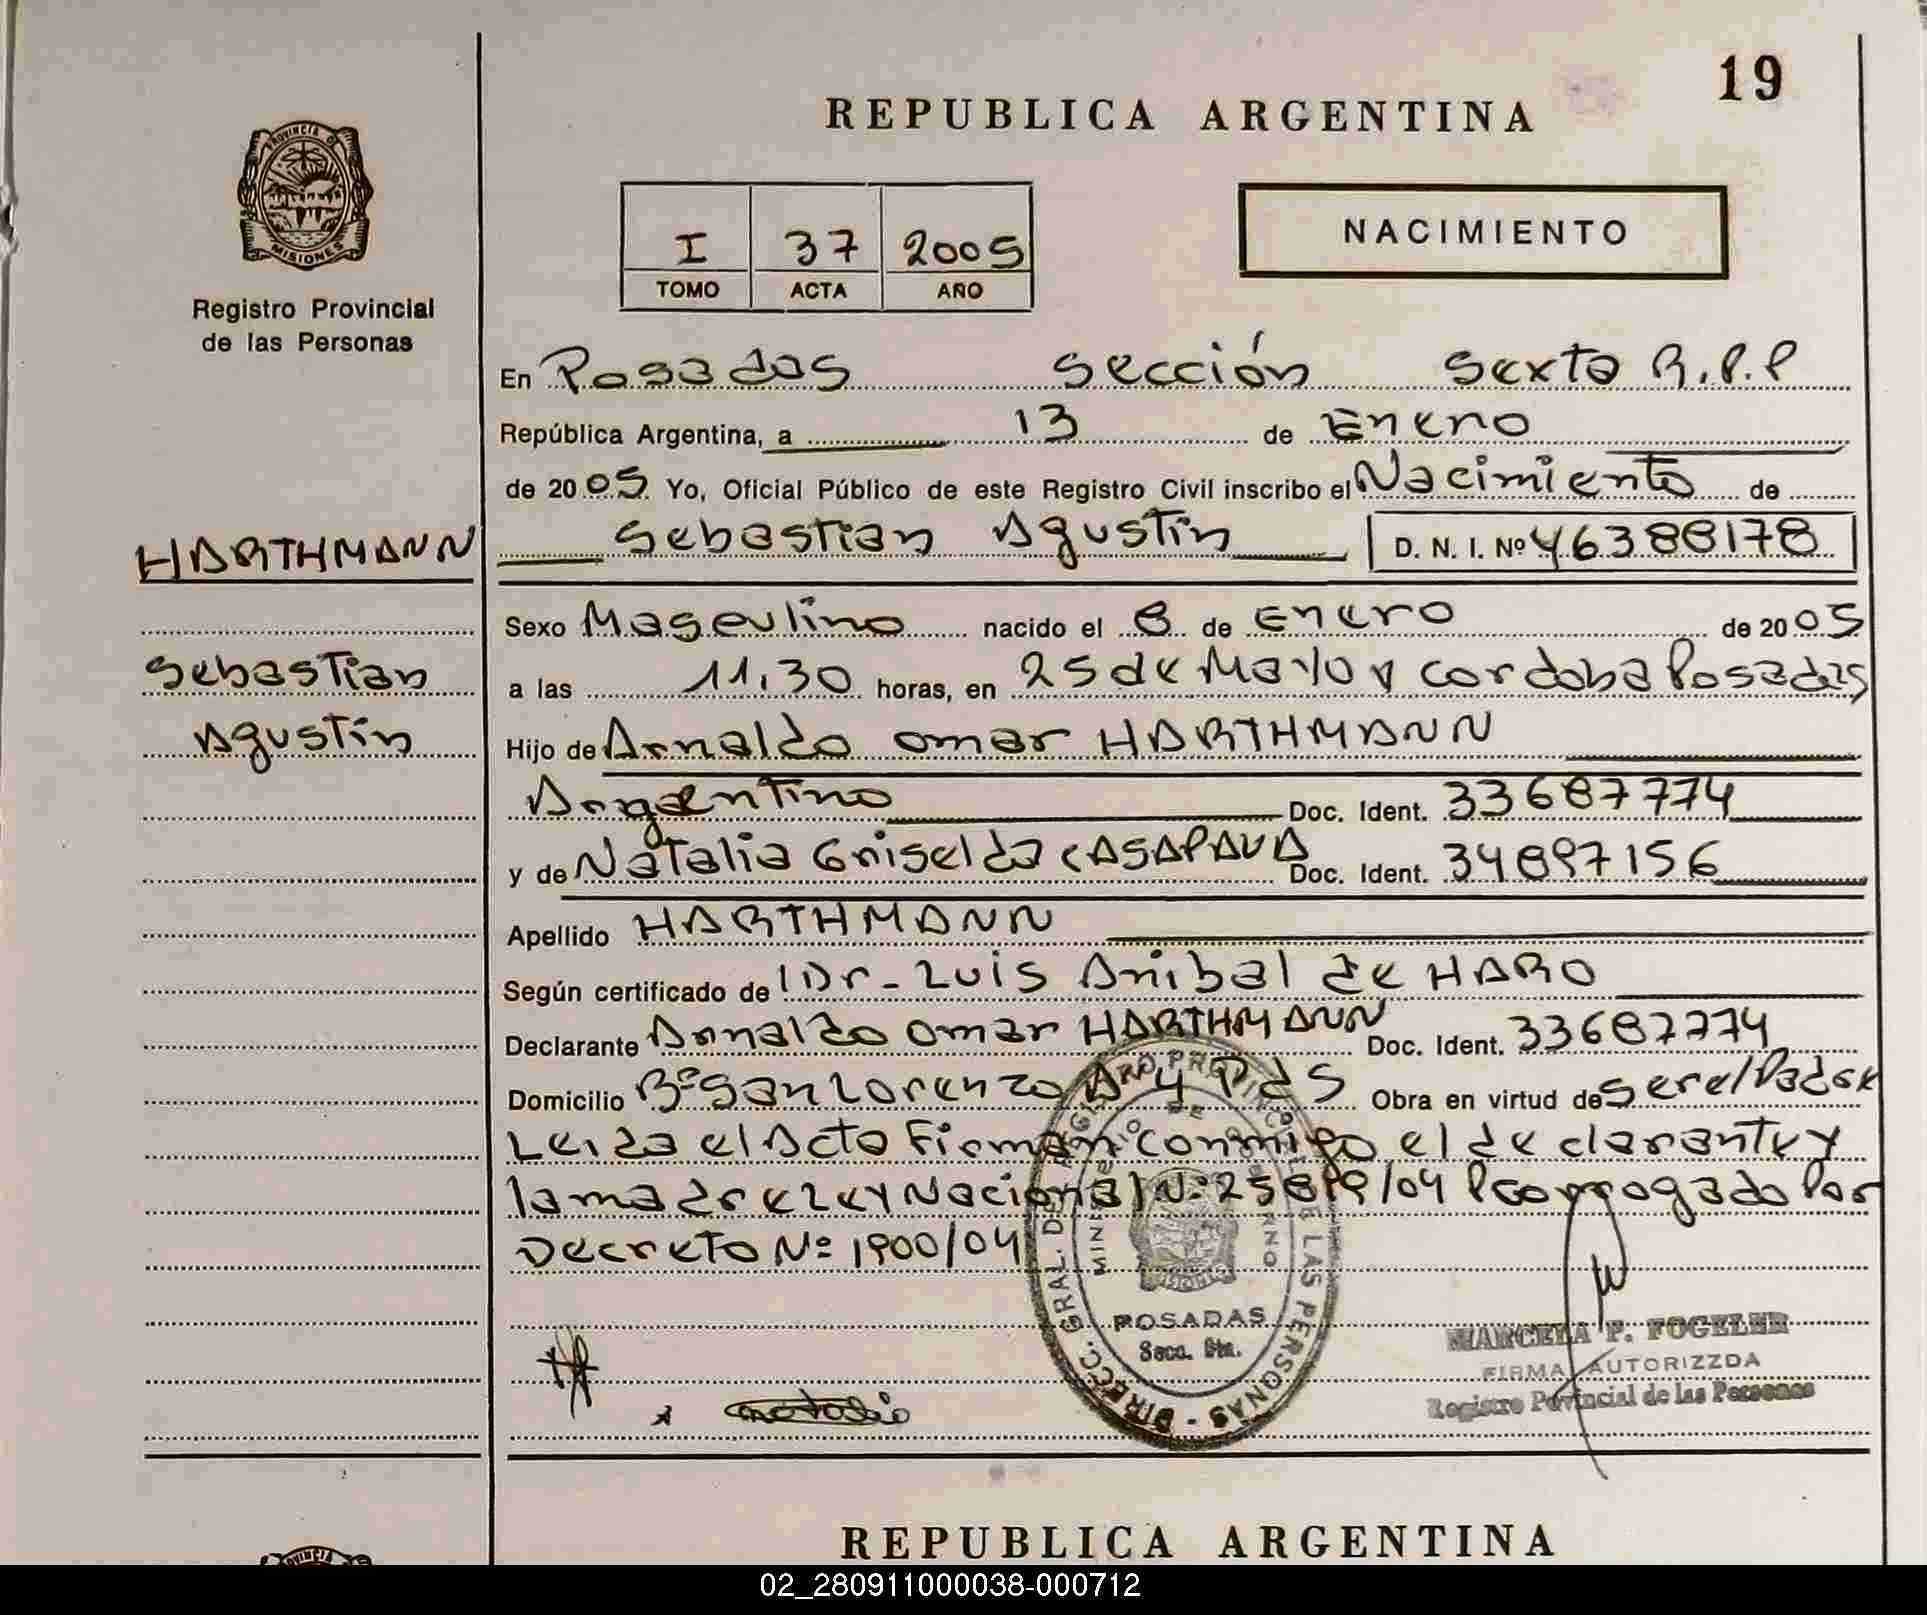 19
REPUBLICA ARGENTINA
PROVINCIA DE
MISIONES
Registro Provincial
de las Personas
I 37 2005
TOMO ACTA AÑO
NACIMIENTO
En Posadas Sección Sexta R.P.P
República Argentina, a 13 de Enero
de 2005 Yo, Oficial Público de este Registro Civil inscribo el Nacimiento de
HARTHMANN
Sebastian Agustín D. N. I. Nº 46388178
Sexo Masculino nacido el 8 de Enero de 2005
Sebastian
a las 11,30 horas, en 25 de Mayo y cordoba Posadas
Agustín
Hijo de Arnaldo omar HARTHMANN
Argentino Doc. Ident. 33687774
y de Natalia Griselda CASAPAVA Doc. Ident. 34897156
Apellido HARTHMANN
Según certificado de Dr- Luis Anibal de HARO
Declarante Arnaldo omar HARTHMANN Doc. Ident. 33687774
Domicilio Bº San Lorenzo A 4 Pdas Obra en virtud de Ser el Padre
Leida el Acta Firman conmigo el declarante y
la madre Ley Nacional Nº 25819/04 Prorrogado Por
Decreto Nº 1900/04
DIRECC. GRAL. DEL REGISTRO PROVINCIAL DE LAS PERSONAS
MINISTERIO DE GOBIERNO
MISIONES
POSADAS
Secc. 6ta.
Natalia
MARCELA F. FOGELER
FIRMA AUTORIZZDA
Registro Provincial de las Personas
REPUBLICA ARGENTINA
PROVINCIA
02_280911000038-000712